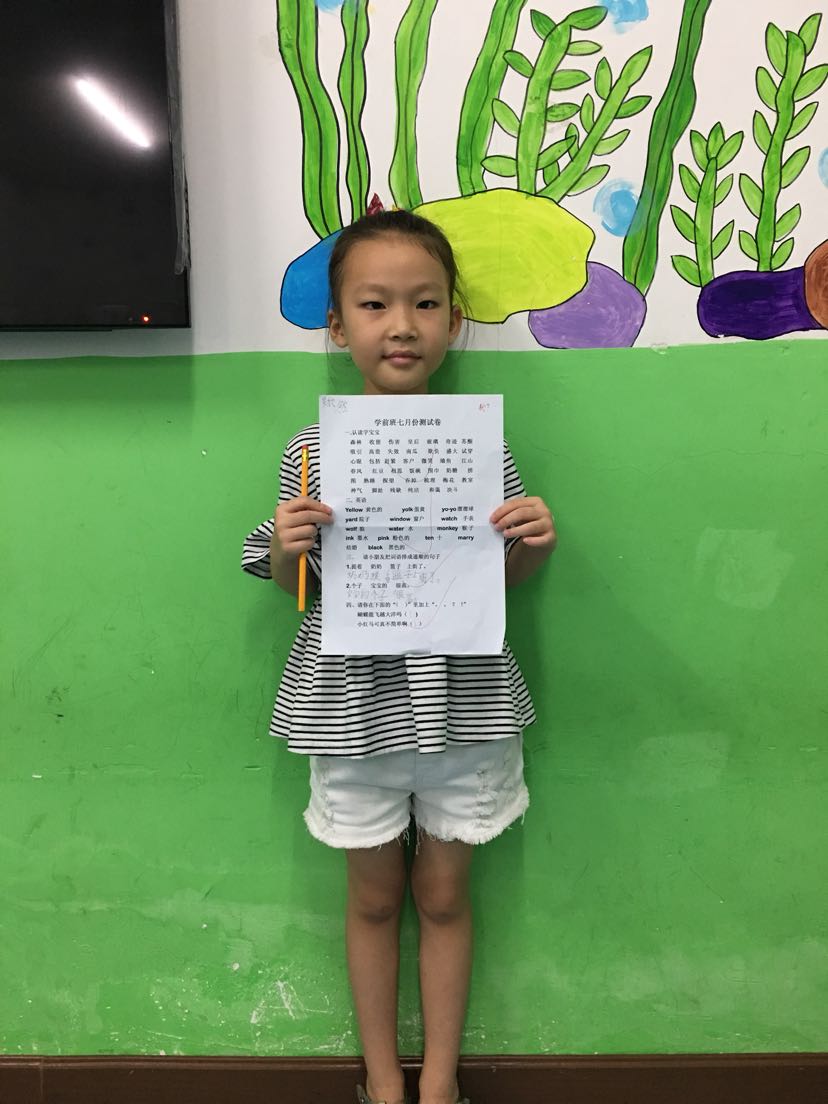 学前班七月份测试卷
一.认读字宝宝
森林 收获 伤害 皇后 玻璃 奇迹 苏醒
吸引 高贵 失败 南瓜 欺负 盛大 试穿
心眼 包括 赶紧 客户 微笑 墙角 江山
春风 红豆 相思 饭碗 围巾 奶糖 拼
图 熟睡 探望 吞掉 梳理 梅花 教室
神气 脚趾 残缺 纯洁 和蔼 决斗
二. 英语
Yellow 黄色的 yolk 蛋黄 yo-yo 溜溜球
yard 院子 window 窗户 watch 手表
wolf 狼 water 水 monkey 猴子
ink 墨水 pink 粉色的 ten 十 marry
结婚 black 黑色的
三、 请小朋友把词语排成通顺的句子
1.提着 奶奶 篮子 上街了。
奶奶提着篮子上街了。
2.个子 宝宝的 很高。
宝宝的个子 很高。
四、请你在下面的“( )”里加上“。 ， ? !”
蝴蝶能飞越大洋吗 ( )
小红马可真不简单啊 ( )